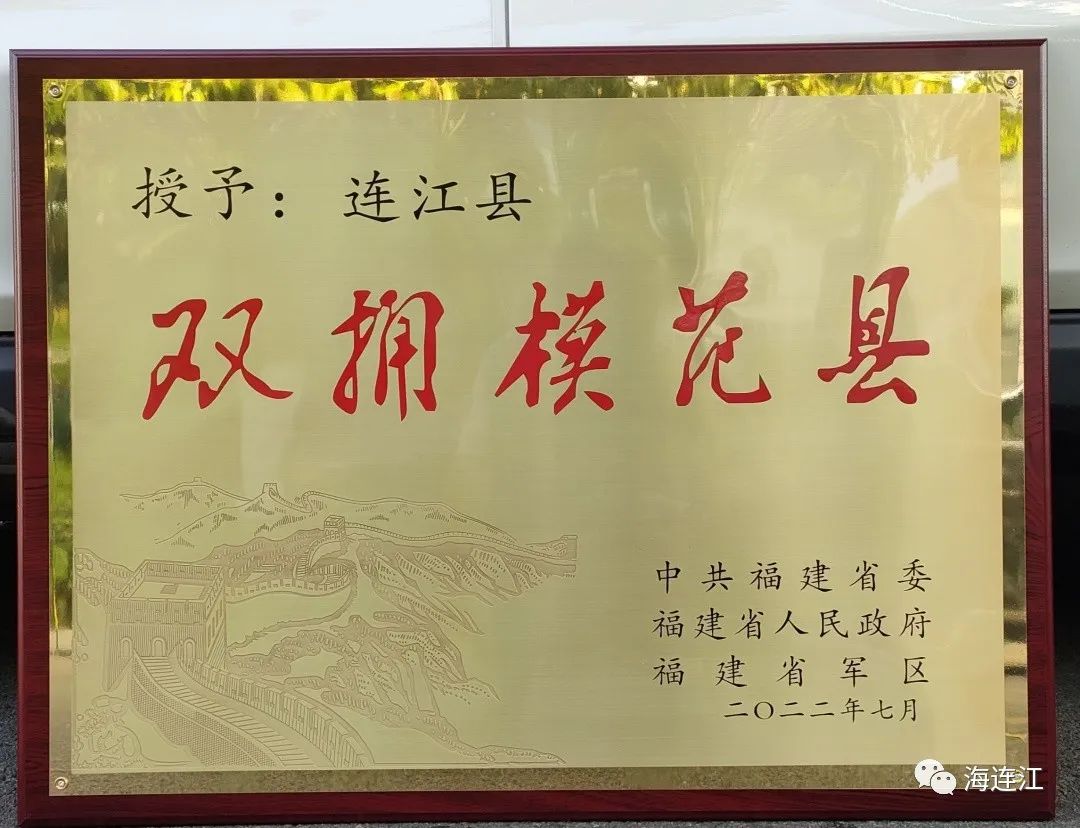 授予：连江县
双拥模范县
中共福建省委
福建省人民政府
福建省军区
二〇二二年七月
海连江